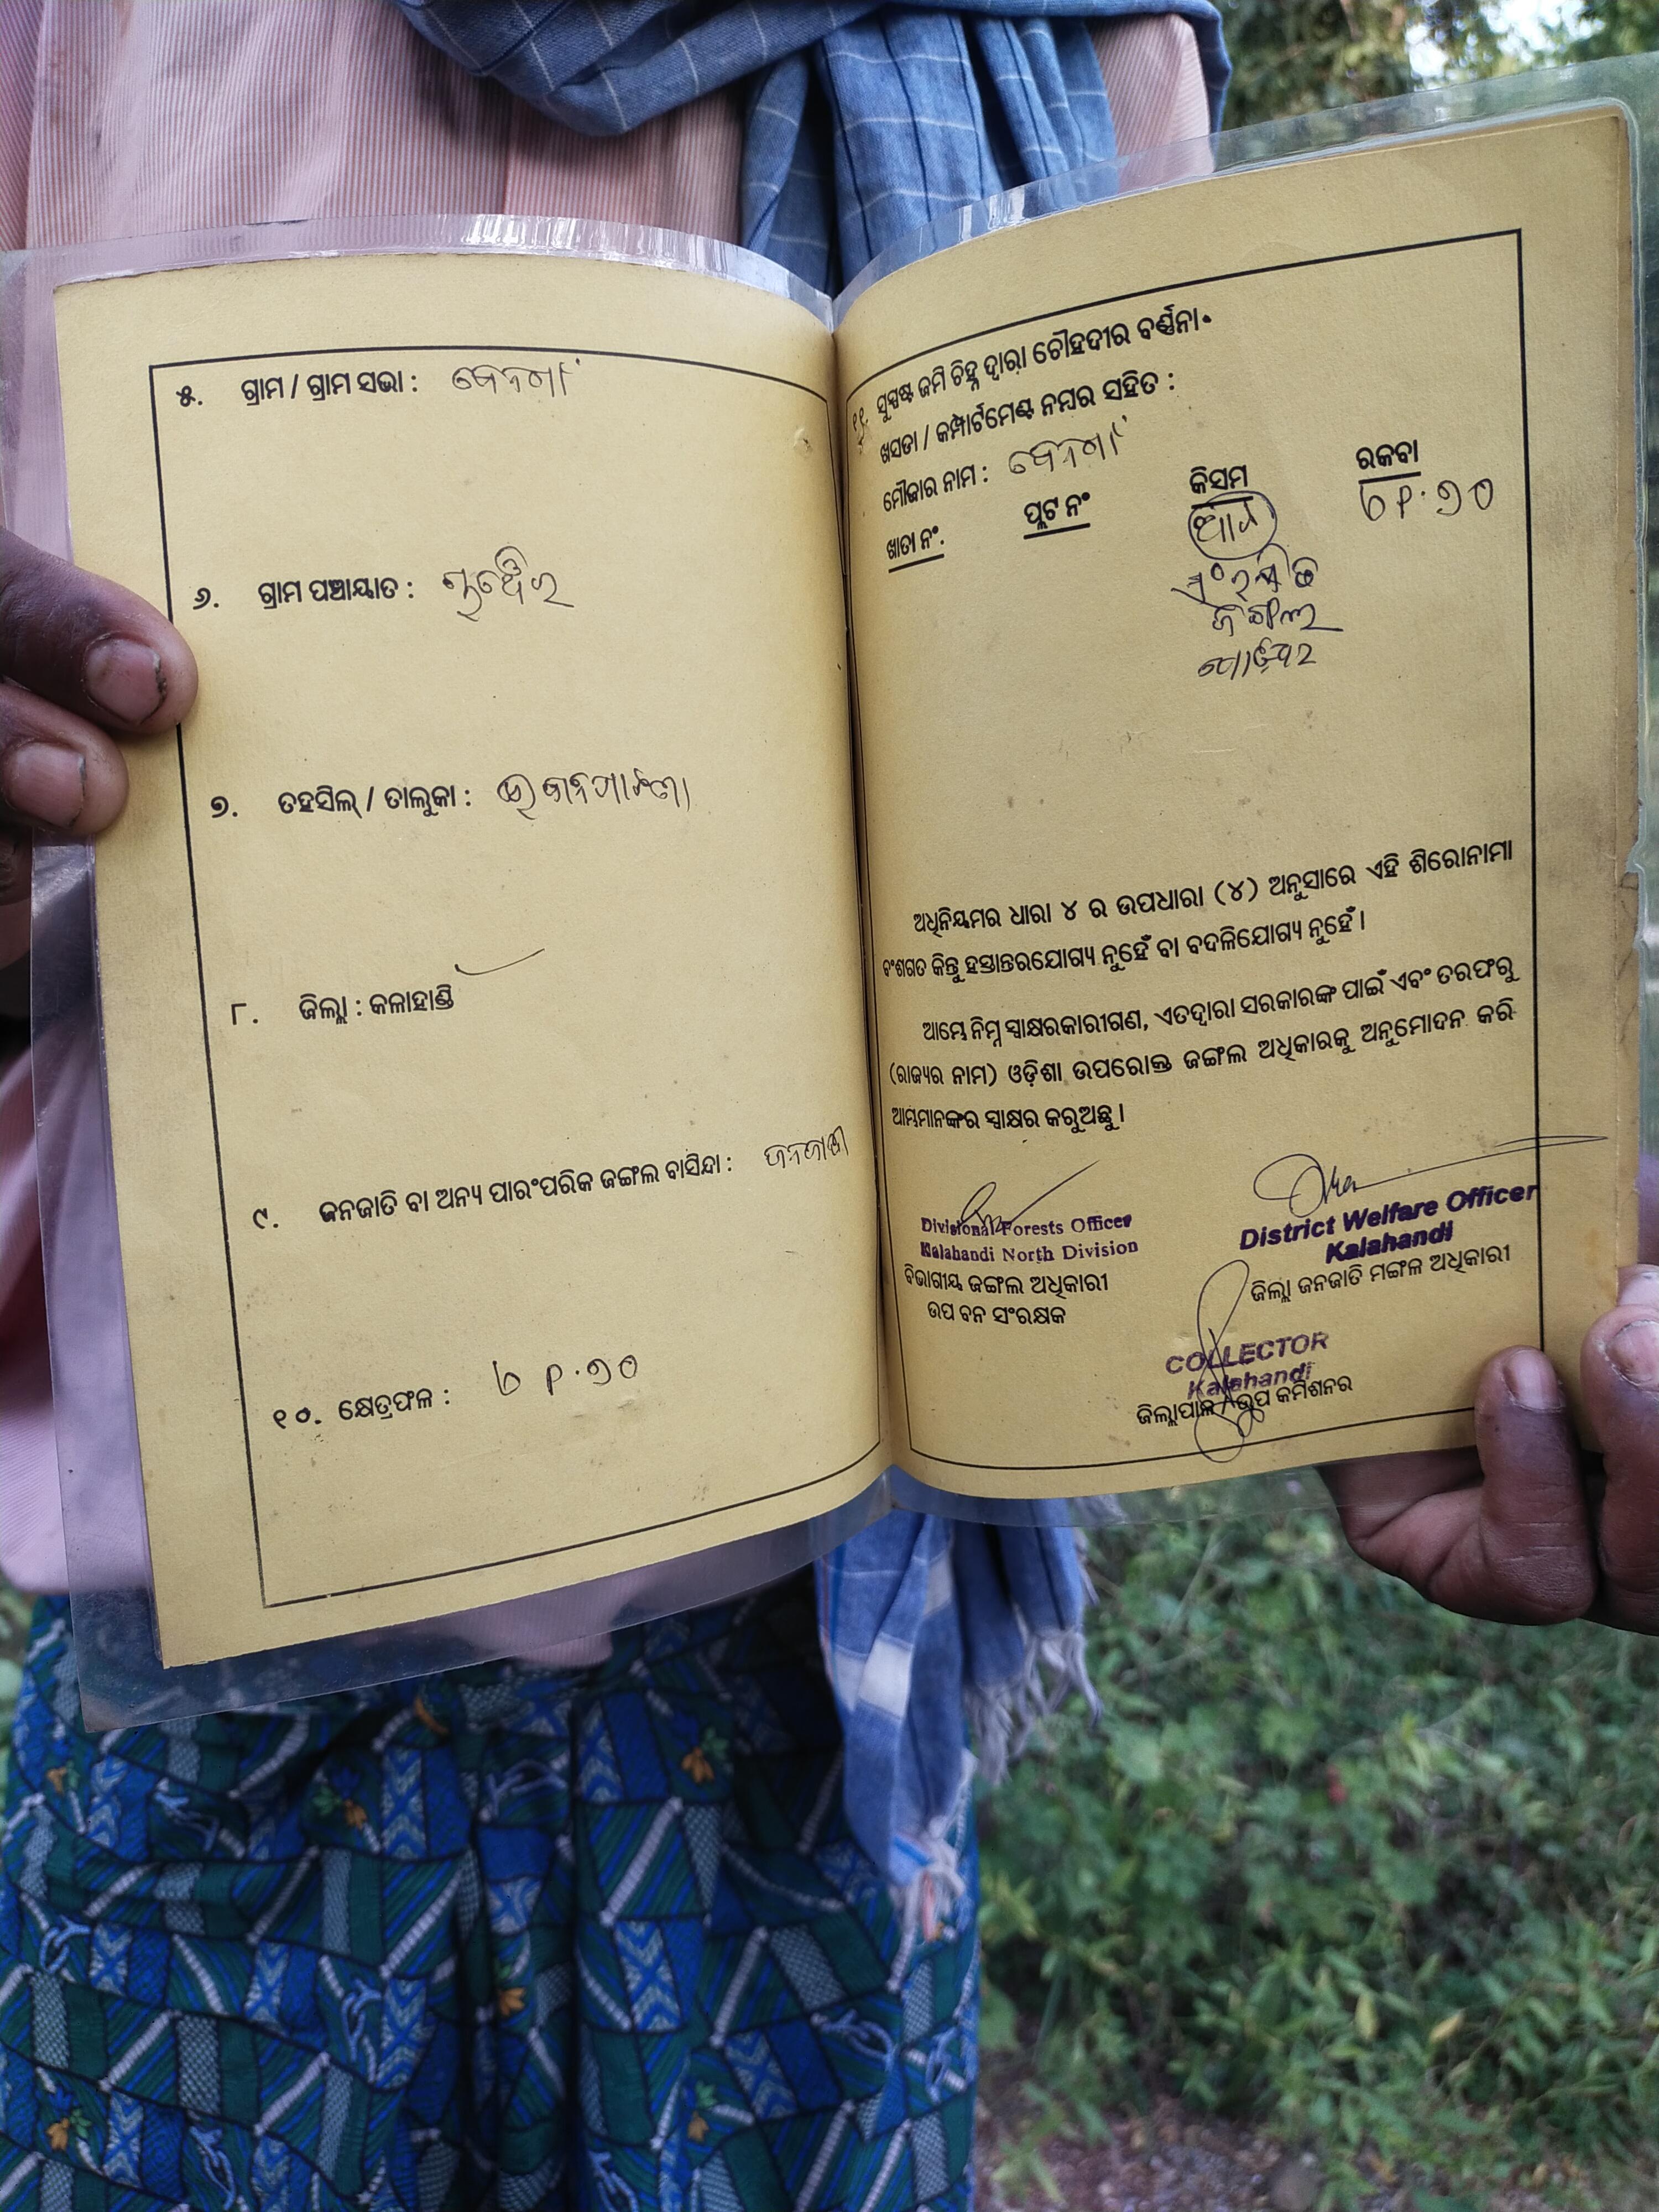 ୫. ଗ୍ରାମ / ଗ୍ରାମ ସଭା :
୬. ଗ୍ରାମ ପଞ୍ଚାୟାତ :
୭. ତହସିଲ୍ / ତାଲୁକା : ଭବାନିପାଟଣା
୮. ଜିଲ୍ଲା : କଳାହାଣ୍ଡି
୯. ଜନଜାତି ବା ଅନ୍ୟ ପାରଂପରିକ ଜଙ୍ଗଲ ବାସିନ୍ଦା : ଜନଜାତି
୧୦. କ୍ଷେତ୍ରଫଳ :
୧୧. ସୁସ୍ପଷ୍ଟ ଜମି ଚିହ୍ନ ଦ୍ୱାରା ଚୌହଦୀର ବର୍ଣ୍ଣନା
ଖସଡା / କମ୍ପାର୍ଟମେଣ୍ଟ ନମ୍ବର ସହିତ :
ମୌଜାର ନାମ :
ଖାତା ନଂ. ପ୍ଲଟ ନଂ କିସମ ରକବା
ସଂରକ୍ଷିତ
ଜଙ୍ଗଲ
ଅଧିନିୟମର ଧାରା ୪ ର ଉପଧାରା (୪) ଅନୁସାରେ ଏହି ଶିରୋନାମା
ବଂଶଗତ କିନ୍ତୁ ହସ୍ତାନ୍ତରଯୋଗ୍ୟ ନୁହେଁ ବା ବଦଳିଯୋଗ୍ୟ ନୁହେଁ ।
ଆମ୍ଭେ ନିମ୍ନ ସ୍ୱାକ୍ଷରକାରୀଗଣ, ଏତଦ୍ୱାରା ସରକାରଙ୍କ ପାଇଁ ଏବଂ ତରଫରୁ
(ରାଜ୍ୟର ନାମ) ଓଡ଼ିଶା ଉପରୋକ୍ତ ଜଙ୍ଗଲ ଅଧିକାରକୁ ଅନୁମୋଦନ କରି
ଆମ୍ଭମାନଙ୍କର ସ୍ୱାକ୍ଷର କରୁଅଛୁ ।
Divisional Forests Officer
Kalahandi North Division
ବିଭାଗୀୟ ଜଙ୍ଗଲ ଅଧିକାରୀ
ଉପ ବନ ସଂରକ୍ଷକ
District Welfare Officer
Kalahandi
ଜିଲ୍ଲା ଜନଜାତି ମଙ୍ଗଳ ଅଧିକାରୀ
COLLECTOR
Kalahandi
ଜିଲ୍ଲାପାଳ / ଉପ କମିଶନର